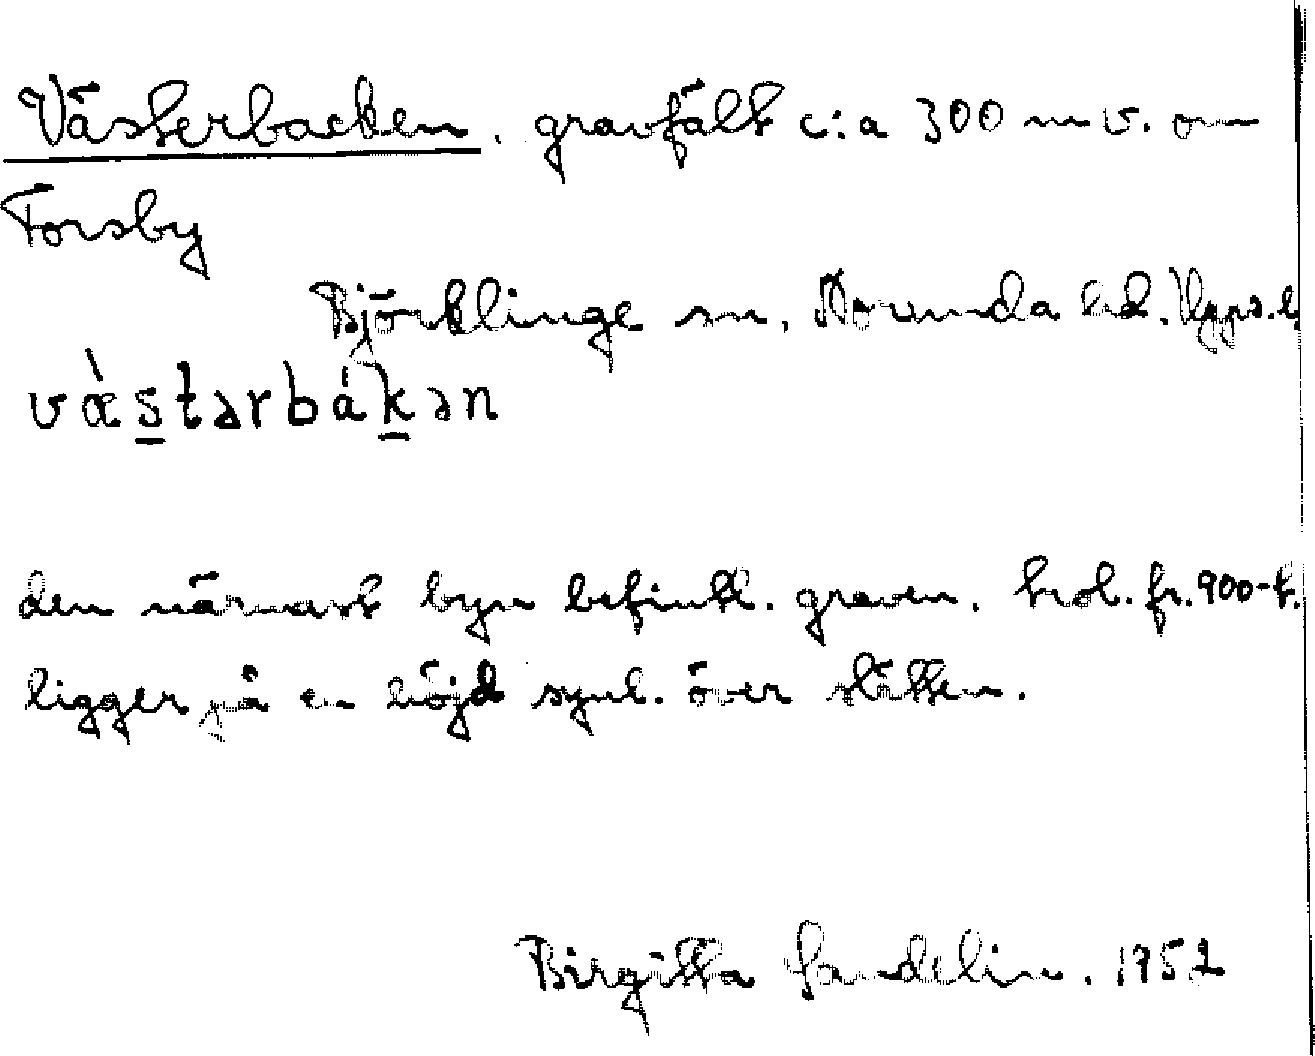 Västerbacken. gravfält c:a 300 m v. om
Forsby
Björklinge sn, Norunda hd. Upps. l
vä̀starbákən
den närmast byn befintl. graven. trol. fr. 900-t.
ligger på en höjd synl. över slätten.
Birgitta Sandelin. 1952